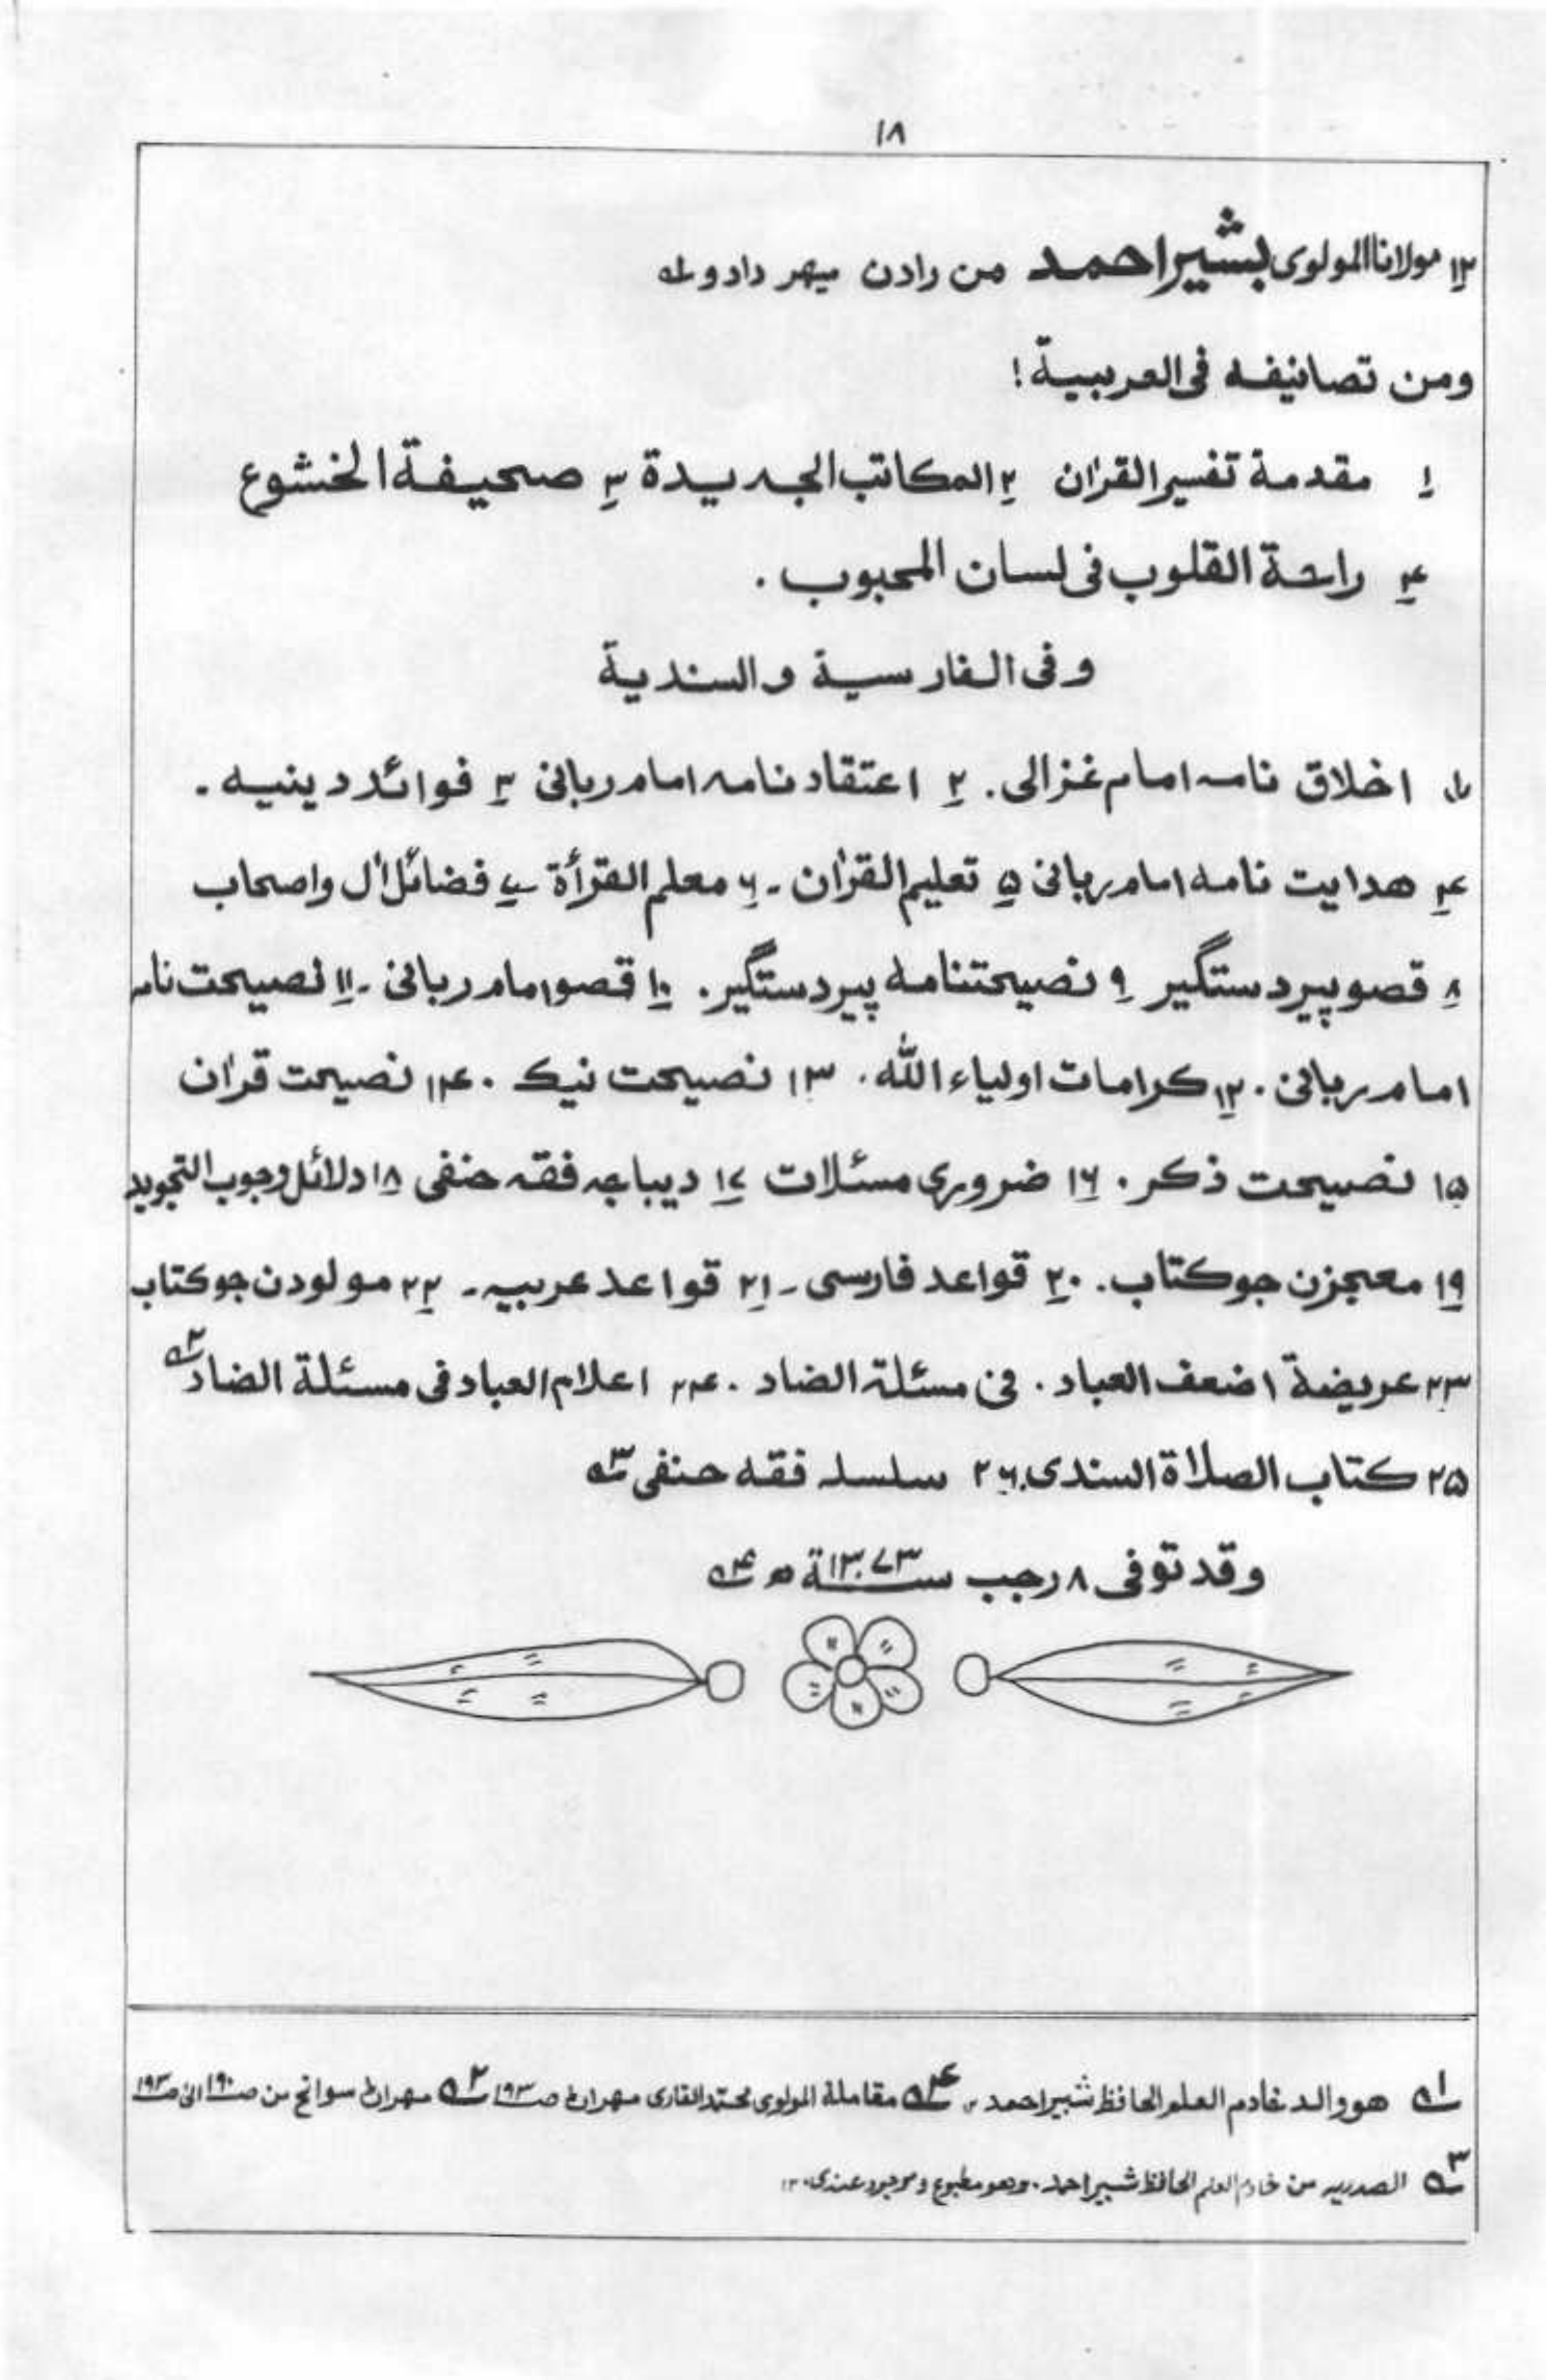 ۱۸
۱۲ مولانا المولوی بشیر احمد من رادن میهر دادو ۱ه
ومن تصانیفه فی العربیة!
۱ مقدمة تفسیر القرٰان ۲ المکاتب الجدیدة ۳ صحیفة الخشوع
۴ راحة القلوب فی لسان المحبوب .
وفی الفارسیة والسندیة
۱ اخلاق نامه امام غزالی. ۲ اعتقاد نامه امام ربانی ۳ فوائد دینیه -
۴ هدایت نامه امام ربانی ۵ تعلیم القرٰان - ۶ معلم القرأة ۷ فضائل اٰل واصحاب
۸ قصو پیر دستگیر ۹ نصیحتنامه پیر دستگیر. ۱۰ قصو امام ربانی - ۱۱ نصیحت نامه
امام ربانی . ۱۲ کرامات اولیاء الله . ۱۳ نصیحت نیک . ۱۴ نصیحت قرٰان
۱۵ نصیحت ذکر . ۱۶ ضروری مسئلات ۱۷ دیباچه فقه حنفی ۱۸ دلائل وجوب التجوید
۱۹ معجزن جو کتاب. ۲۰ قواعد فارسی - ۲۱ قواعد عربیه - ۲۲ مولودن جو کتاب
۲۳ عریضة اضعف العباد . فی مسئلة الضاد . ۲۴ اعلام العباد فی مسئلة الضاد ۲ه
۲۵ کتاب الصلاة السندی. ۲۶ سلسله فقه حنفی ۳ه
وقد توفی ۸ رجب سنة ۱۳۷۳ ھ ۴ه
۱ه هو والد خادم العلم الحافظ شبیر احمد ۴ه مقاملة المولوی محمد القاری مهران ص ۱۹۳ ۲ه مهران سوانح من ص ۱۹۰ الی ص ۱۹۳
۳ه الصدریه من خادم العلم الحافظ شبیر احمد . وهو مطبوع وموجود عندی . ۱۲